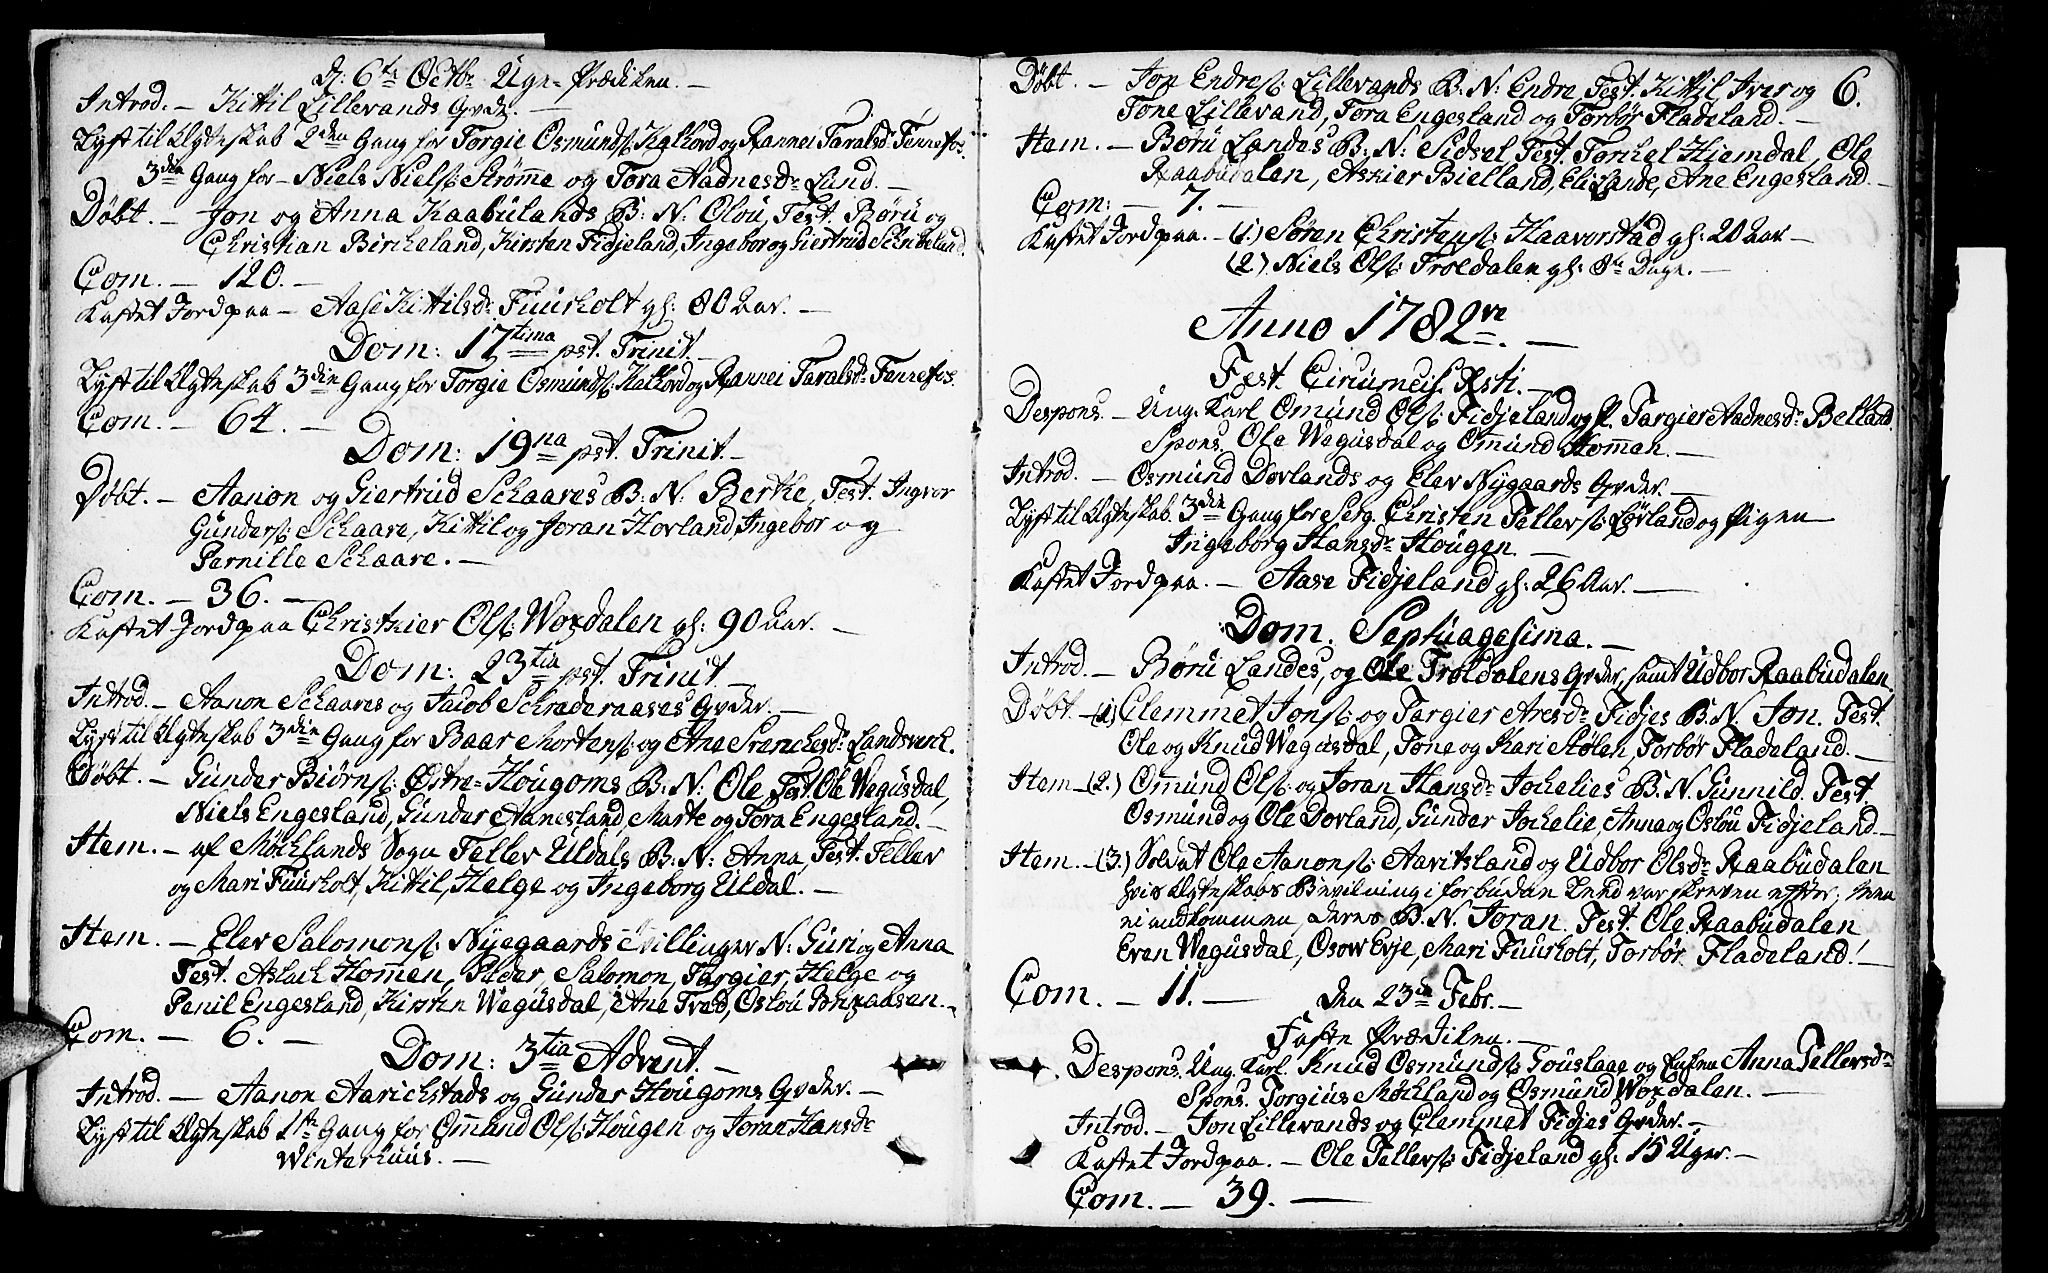 D: 6te Octbr Uge-Prædiken. –
Introd. – Kittil Lillevands Qvde. –
Lyst til Ægteskab 2den Gang for Torgie Osmundsß: Kalhord og Rannei Taralsdr Fennefos.
3die Gang for – Niels Nielsß: Strømme og Tora Aadnesdr Lund. –
Døbt. – Jon og Anna Kaabulands B: N: Olou, Test. Børu og
Christian Bircheland, Kirsten Fidjeland, Ingebor og Giertrud Schribeland.
Com. – 120. –
Kastet Jord paa – Aase Kittilsdr Fuurholt gl: 80 Aar. –
Dom: 17tima pst. Trinit. –
Lyst til Ægteskab 3die Gang for Torgie Osmundsß: Kalhord og Rannei Taralsdr Fennefos.
Com. – 64. –
Dom: 19na pst. Trinit. –
Døbt. – Aanon og Giertrud Schaares B: N: Berthe, Test. Ingvor
Gundersß: Schaare, Kittil og Joran Hovland, Ingebor og
Pernille Schaare. –
Com. – 36. –
Kastet Jord paa Christhier Olsß: Woxdalen gl: 90 Aar. –
Dom: 23tia pst. Trinit –
Introd. – Aanon Schaares og Jacob Schraderaases Qvder. –
Lyst til Ægteskab 3die Gang for Baar Mortensß: og Ane Srenchesdr Landsverk.
Døbt. – Gunder Biørnsß: Østre-Hougoms B: N: Ole Test. Ole Wegusdal,
Niels Engesland, Gunder Aanesland, Marte og Tora Engesland. –
Item. – af Møchlands Sogn Teller Uldals B: N: Anna, Test. Teller
og Mari Fuurholt, Kittil, Helge og Ingeborg Uldal. –
Item. – Elev Salomonsß: Nyegaards Tvillinger N: Guri og Anna
Test. Aslach Homen, Peder, Salomon, Targier, Helge og
Penil Engesland, Kirsten Wegusdal, Ane Træd, Oslou –
Com. – 6. –
Dom: 3tia Advent. –
Introd. – Aanon Aarichstads og Gunder Hougoms Qvder. –
Lyst til Ægteskab 1te Gang for Omund Olsß: Hougen og Joran Hansdr
Winterhuus. –
Døbt. – Jon Endresß: Lillevands B. N: Endre, Test. Kittil Iver og 6.
Tone Lillevand, Tora Engesland og Torbør Fladeland. –
Item. – Børu Landes B: N: Sidsel Test. Torchel Hiemdal, Ole
Raabudalen, Askier Bielland, Eli Lande, Ane Engesland. –
Com: – 7. –
Kastet Jord paa. – (1.) Søren Christensß: Haavorstad gl: 20 Aar –
(2.) Niels Olsß: Troldalen gl: 8te Dage. –
Anno 1782ve. –
Fest. Circumcis. Xsti. –
Despons. – Ung: Karl Omund Olsß: Fidjeland og P. Targier Aadnesdr Belland.
Spons. Ole Wegusdal og Omund Homen. –
Introd. – Osmund Dovlands og Elev Nygaards Qvder. –
Lyst til Ægteskab. 3die Gang for Serg. Christen Tellersß: Lørland og Pigen
Ingeborg Hansdr Hougen. –
Kastet Jord paa. – Aase Fidjeland gl: 26 Aar. –
Dom. Septuagesima. –
Introd. – Børu Landes, og Ole Troldalens Qvder, samt Udbor Raabudalen.
Døbt. – (1) Clemmet Jonsß: og Targier Aresdr Fidjes B. N. Jon. Test.
Ole og Knud Wegusdal, Tone og Kari Stølen, Torbør Fladeland. –
Item – (2.) Omund Olsß: og Joran Hansdr Jochelies B. N. Gunnild. Test
Osmund og Ole Dovland, Gunder Jochelie, Anna og Oslou Fidjeland. –
Item. – (3.) Soldat Ole Aanonsß: Aavitsland og Udbor Olsdr Raabudalen
hvis Ægteskabs Bevilning i forbuden Leed var skreven efter, men
ei indkommen, deres B. N. Joran. Test. Ole Raabudalen
Even Wegusdal, Osow Evje, Mari Fuurholt, Torbør Fladeland! –
Com. – 11. –
den 23de Febr. –
Faste Prædiken. –
Despons. Ung Karl. Knud Osmundsß: Gouslaae og Enken Anna Tellersdr
Spons. Torgius Møchland og Osmund Woxdalen. –
Introd. – Jon Lillevands og Clemmet Fidjes Qvder. –
Kastet Jord paa. – Ole Tellersß: Fidjeland gl: 15 Uger. –
Com. – 39. –